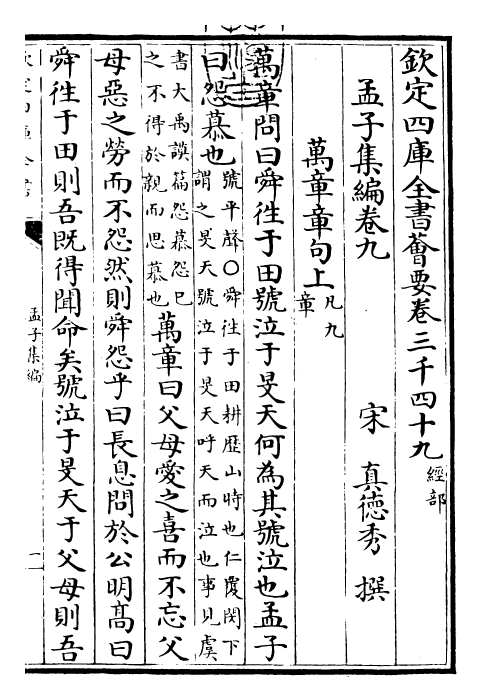 欽定四庫全書薈要卷三千四十九 經部
孟子集編卷九
宋 真德秀 撰
萬章章句上 凡九章
萬章問曰舜往于田號泣于旻天何為其號泣也孟子
曰怨慕也 號平聲○舜往于田耕歴山時也仁覆閔下
謂之旻天號泣于旻天呼天而泣也事見虞
書大禹謨篇怨慕怨已
之不得於親而思慕也 萬章曰父母愛之喜而不忘父
母惡之勞而不怨然則舜怨乎曰長息問於公明髙曰
舜往于田則吾既得聞命矣號泣于旻天于父母則吾
孟子集編
一